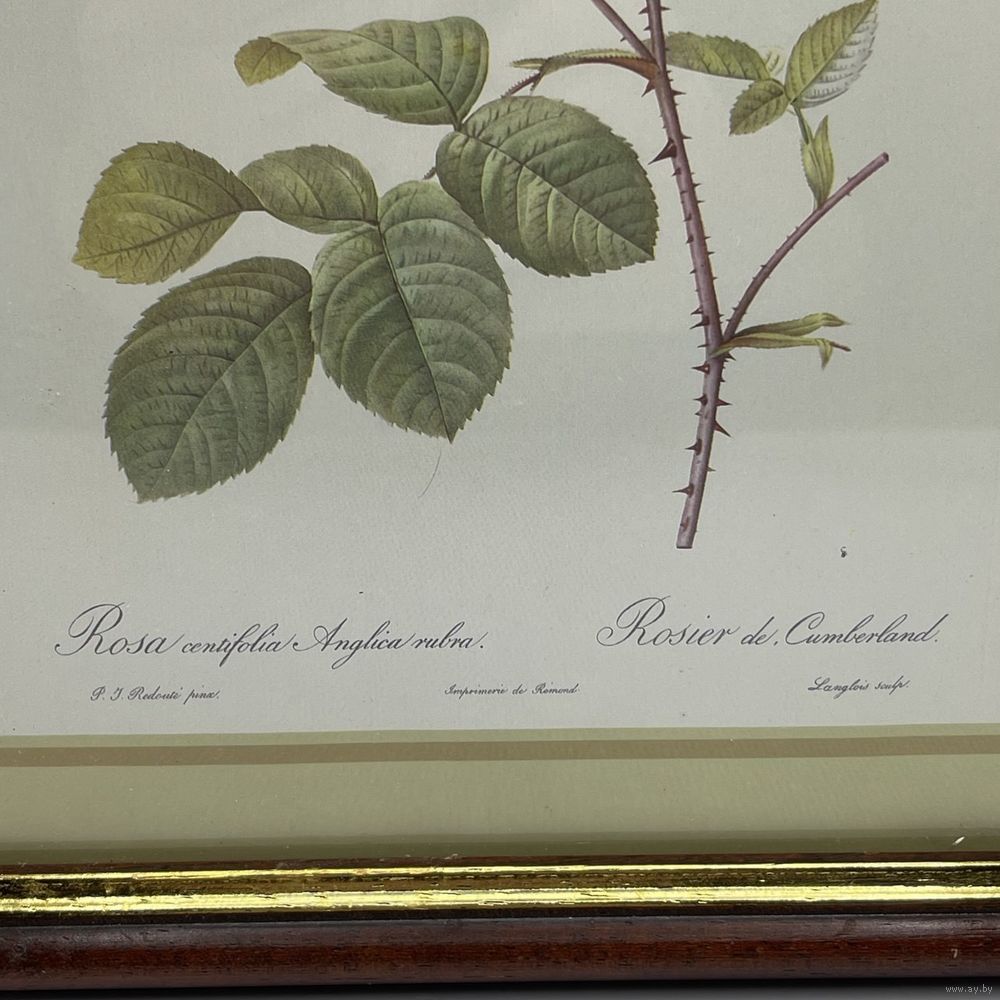 Rosa centifolia Anglica rubra.
Rosier de Cumberland.
P. J. Redouté pinx.
Imprimerie de Rémond
Langlois sculp.
www.ay.by